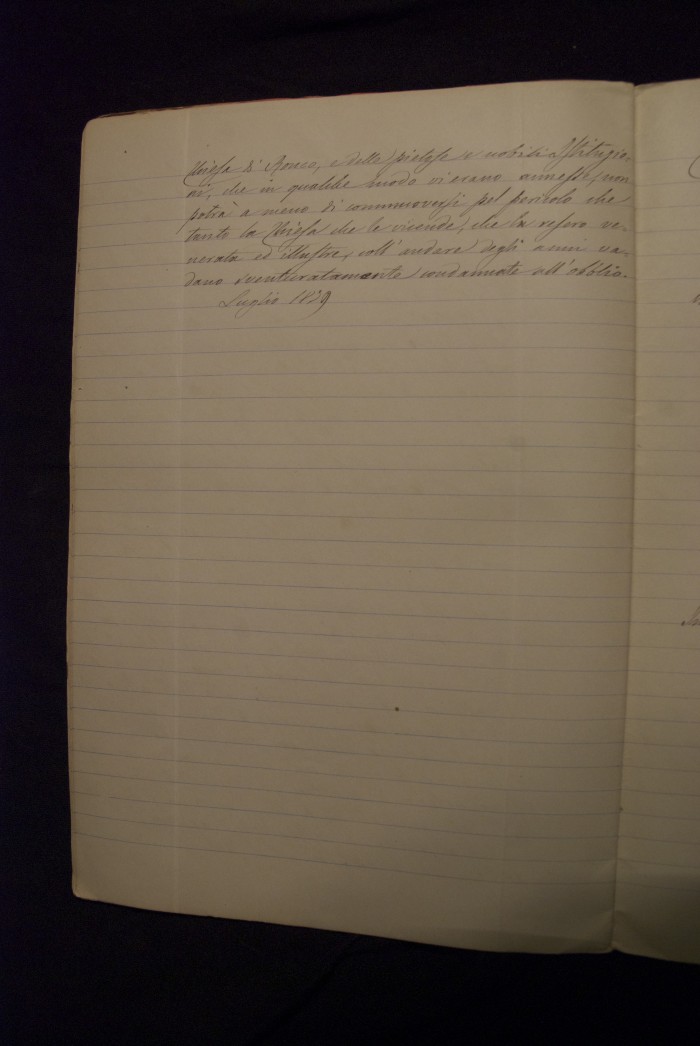 Chiesa di Ronco, e delle pietose e nobili Istituzio-
ni, che in qualche modo vi erano annesse, non
potrà a meno di commuoversi pel pericolo che
tanto la Chiesa che le vicende, che la resero ve-
nerata ed illustre, coll'andare degli anni va-
dano sventuratamente condannate all'obblio.
Luglio 1879